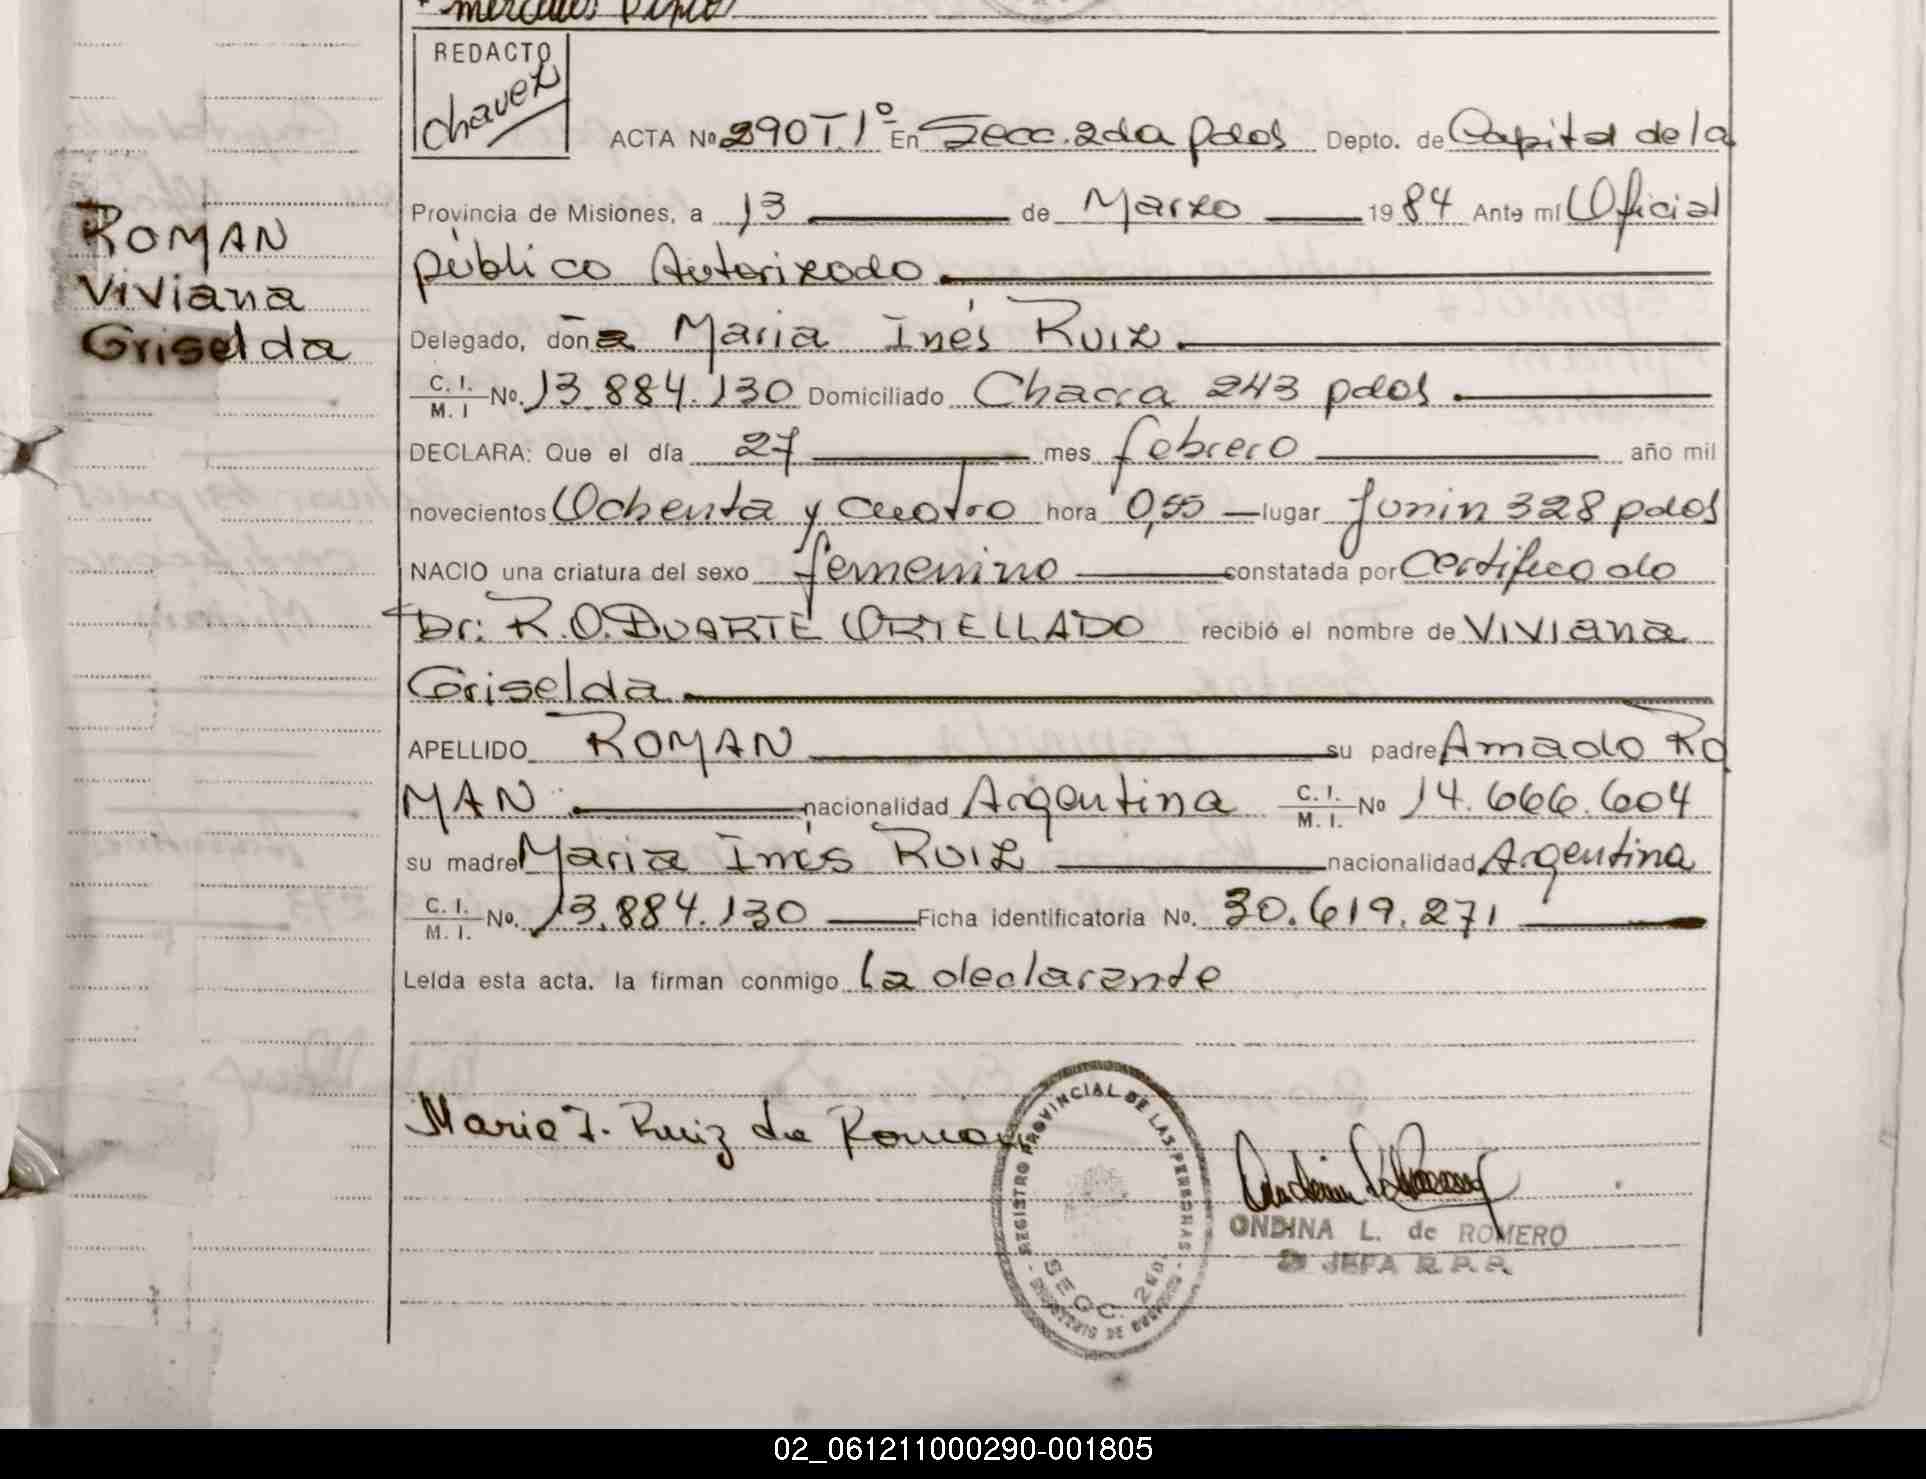 REDACTO
Chavez
ACTA Nº 290 T. 1º En Secc. 2da pdas Depto. de Capital de la
Provincia de Misiones, a 13 de Marzo 1984 Ante mí Oficial
público Autorizado
ROMAN
Viviana
Griselda
Delegado, doña Maria Inés Ruiz
C. I. M. I Nº. 13.884.130 Domiciliado Chacra 243 pdas
DECLARA: Que el día 27 mes febrero año mil
novecientos Ochenta y cuatro hora 0,55 lugar Junin 328 pdas
NACIO una criatura del sexo femenino constatada por certificado
Dr: R.O. DUARTE ORTELLADO recibió el nombre de Viviana
Griselda
APELLIDO ROMAN su padre Amado Ro
MAN nacionalidad Argentina C. I. M. I. Nº 14.666.604
su madre Maria Inés Ruiz nacionalidad Argentina
C. I. M. I. Nº. 13.884.130 Ficha identificatoria No. 30.619.271
Leída esta acta. la firman conmigo la declarante
Maria I. Ruiz de Roman
REGISTRO PROVINCIAL DE LAS PERSONAS
SECC. 2da
ONDINA L. de ROMERO
JEFA R.P.P.
02_061211000290-001805